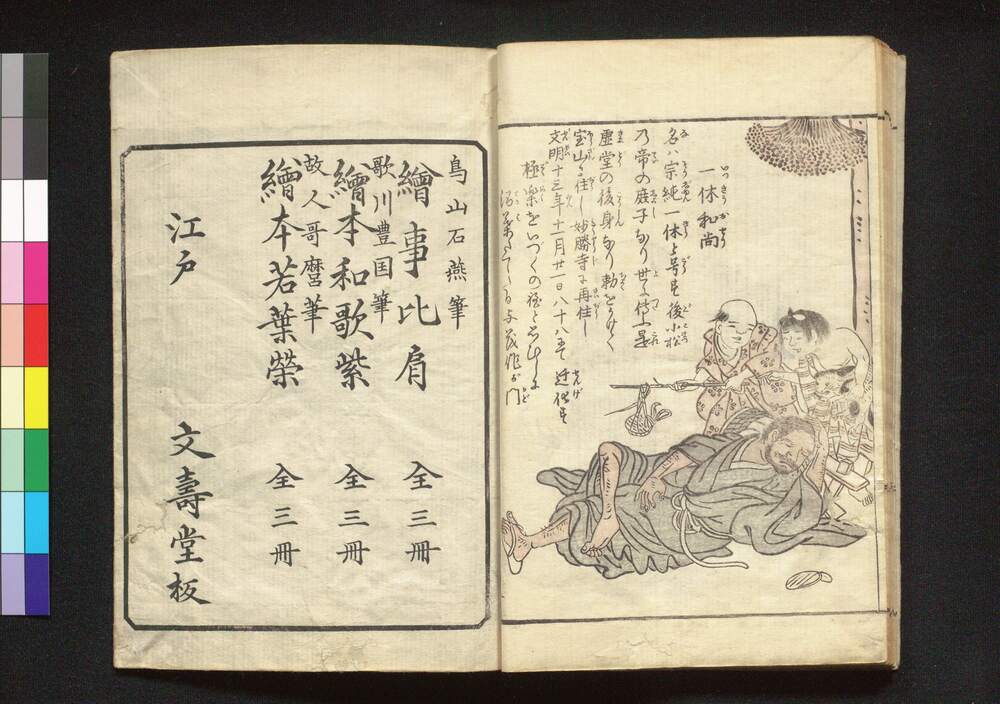 一休和尚
名ハ宗純一休と号す後小松
乃帝の庶子なり世に伝ふ是
虚堂の後身なり勅をうけて
宝山に住し妙勝寺に再住し
文明十三年十一月廿一日八十八にて遷化す
極楽をいづくの程と
門
鳥山石燕筆
繪事比肩 全三冊
歌川豊国筆
繪本和歌紫 全三冊
故人哥麿筆
繪本若葉榮 全三冊
江戸 文壽堂板